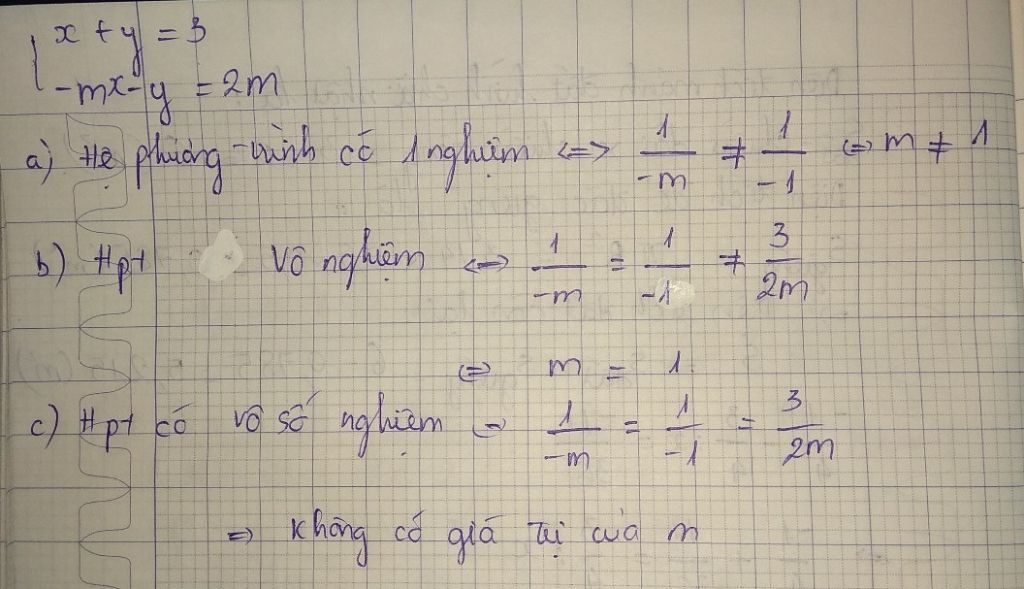 x + y = 3
-mx - y = 2m
a) Hệ phương trình có 1 nghiệm <=> 1/-m ≠ 1/-1 <=> m ≠ 1
b) Hpt vô nghiệm <=> 1/-m = 1/-1 ≠ 3/2m
<=> m = 1
c) Hpt có vô số nghiệm <=> 1/-m = 1/-1 = 3/2m
=> không có giá trị của m